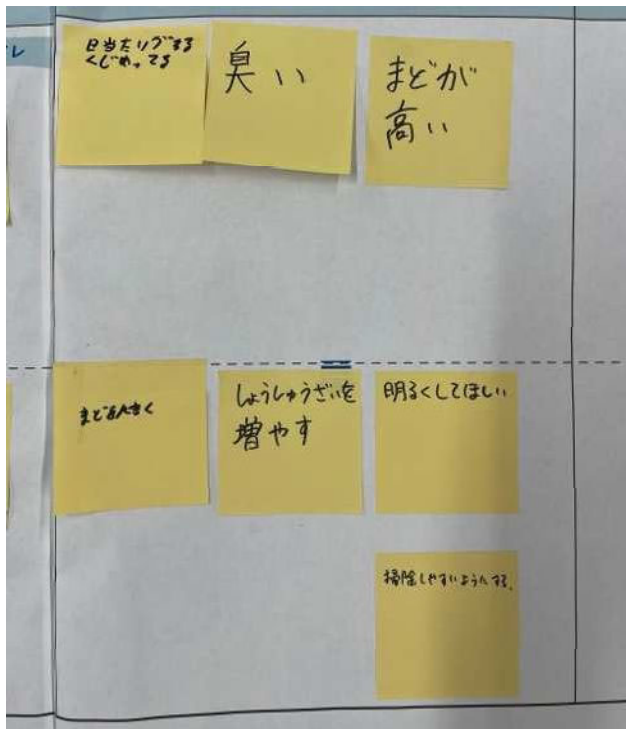 レ
日当たりがわる
くじめってる
臭い
まどが
高い
まどを大きく
しょうしゅうざいを
増やす
明るくしてほしい
掃除しやすいようにする。